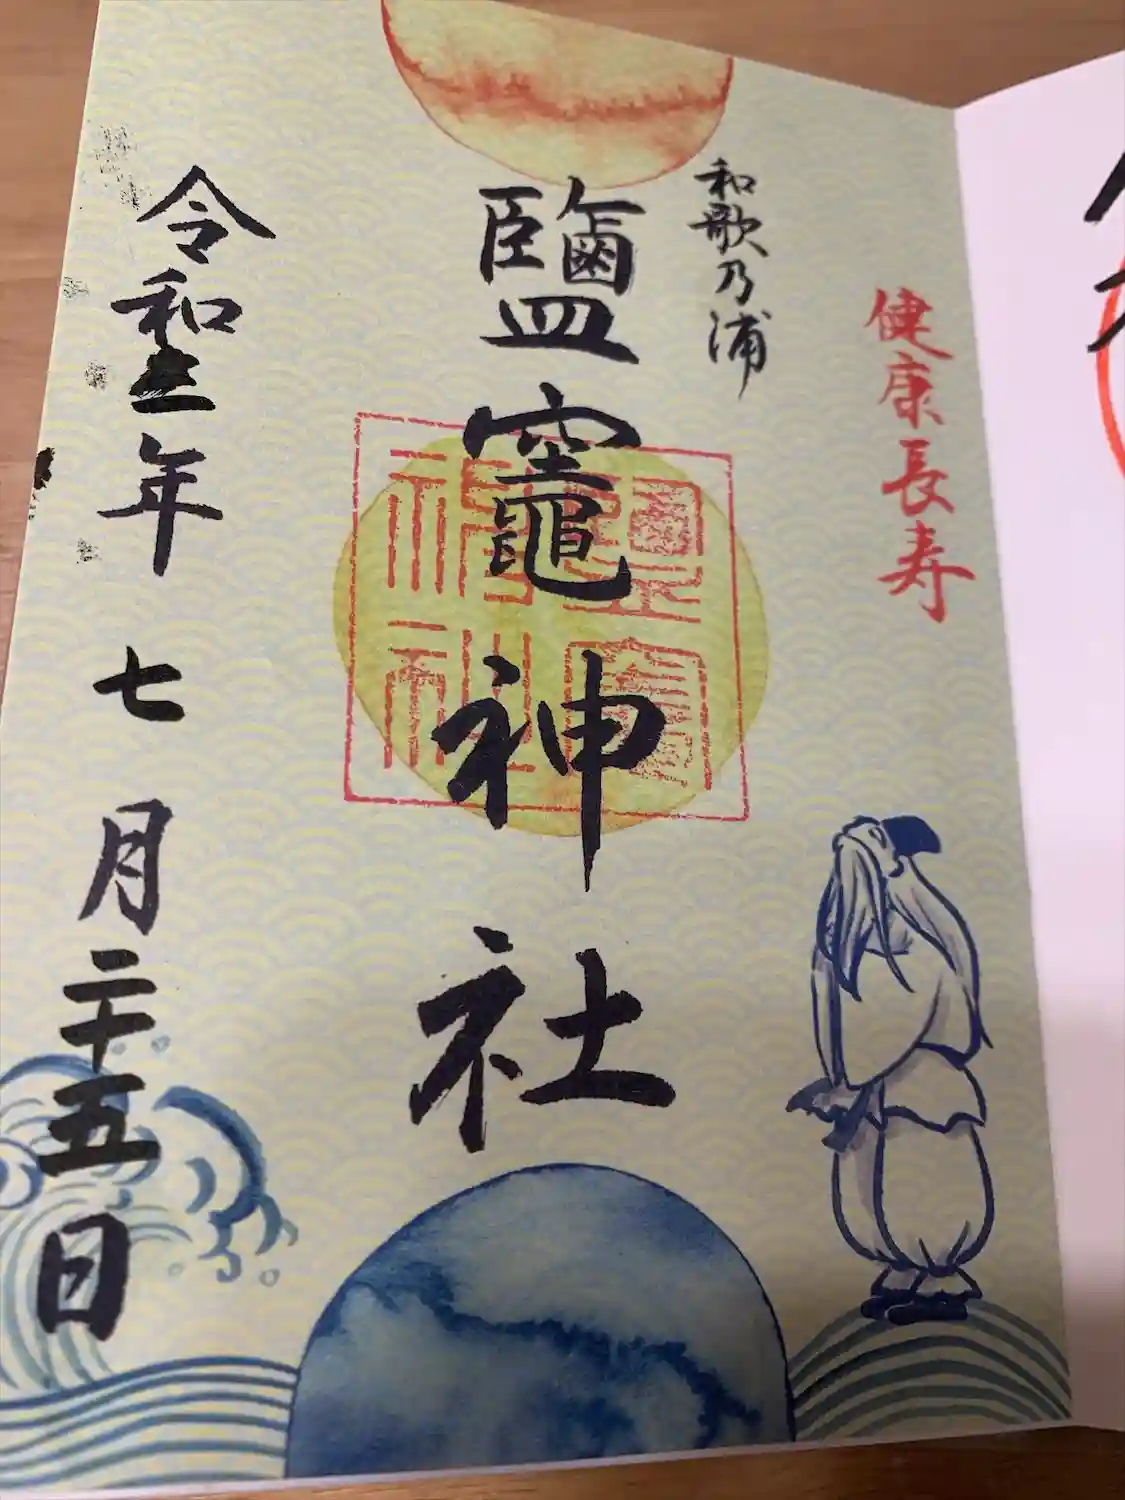 健康長寿
和歌乃浦
鹽竈神社
鹽竈神社
令和三年七月二十五日